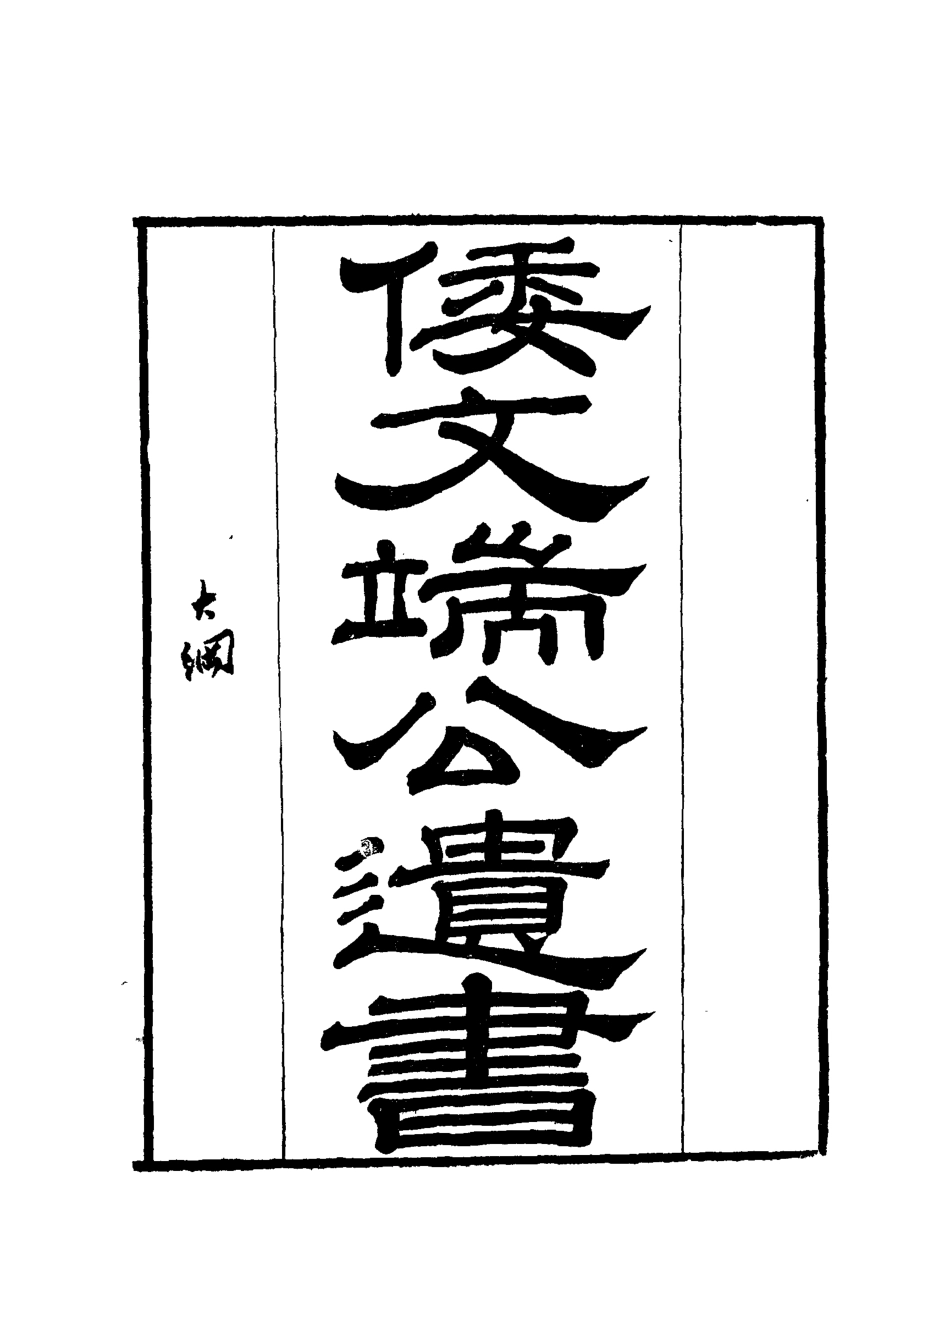 倭文端公遺書
大綱